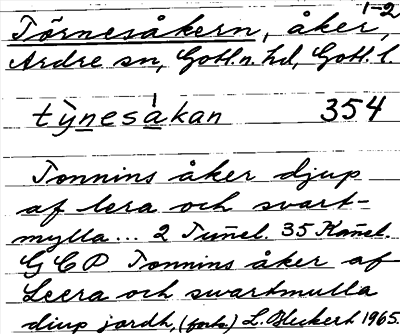 1-2
Törnesåkern, åker,
Ardre sn, Gotl. n. hd, Gotl. l.
tỳnesåkan 354
Tonnins åker djup
af lera och svart-
mylla... 2 Tun̄el. 35 Kan̄el.
G C P Tonnins åker af
Leera och swartmulla
diup jordh, (forts) L. Bleckert 1965.